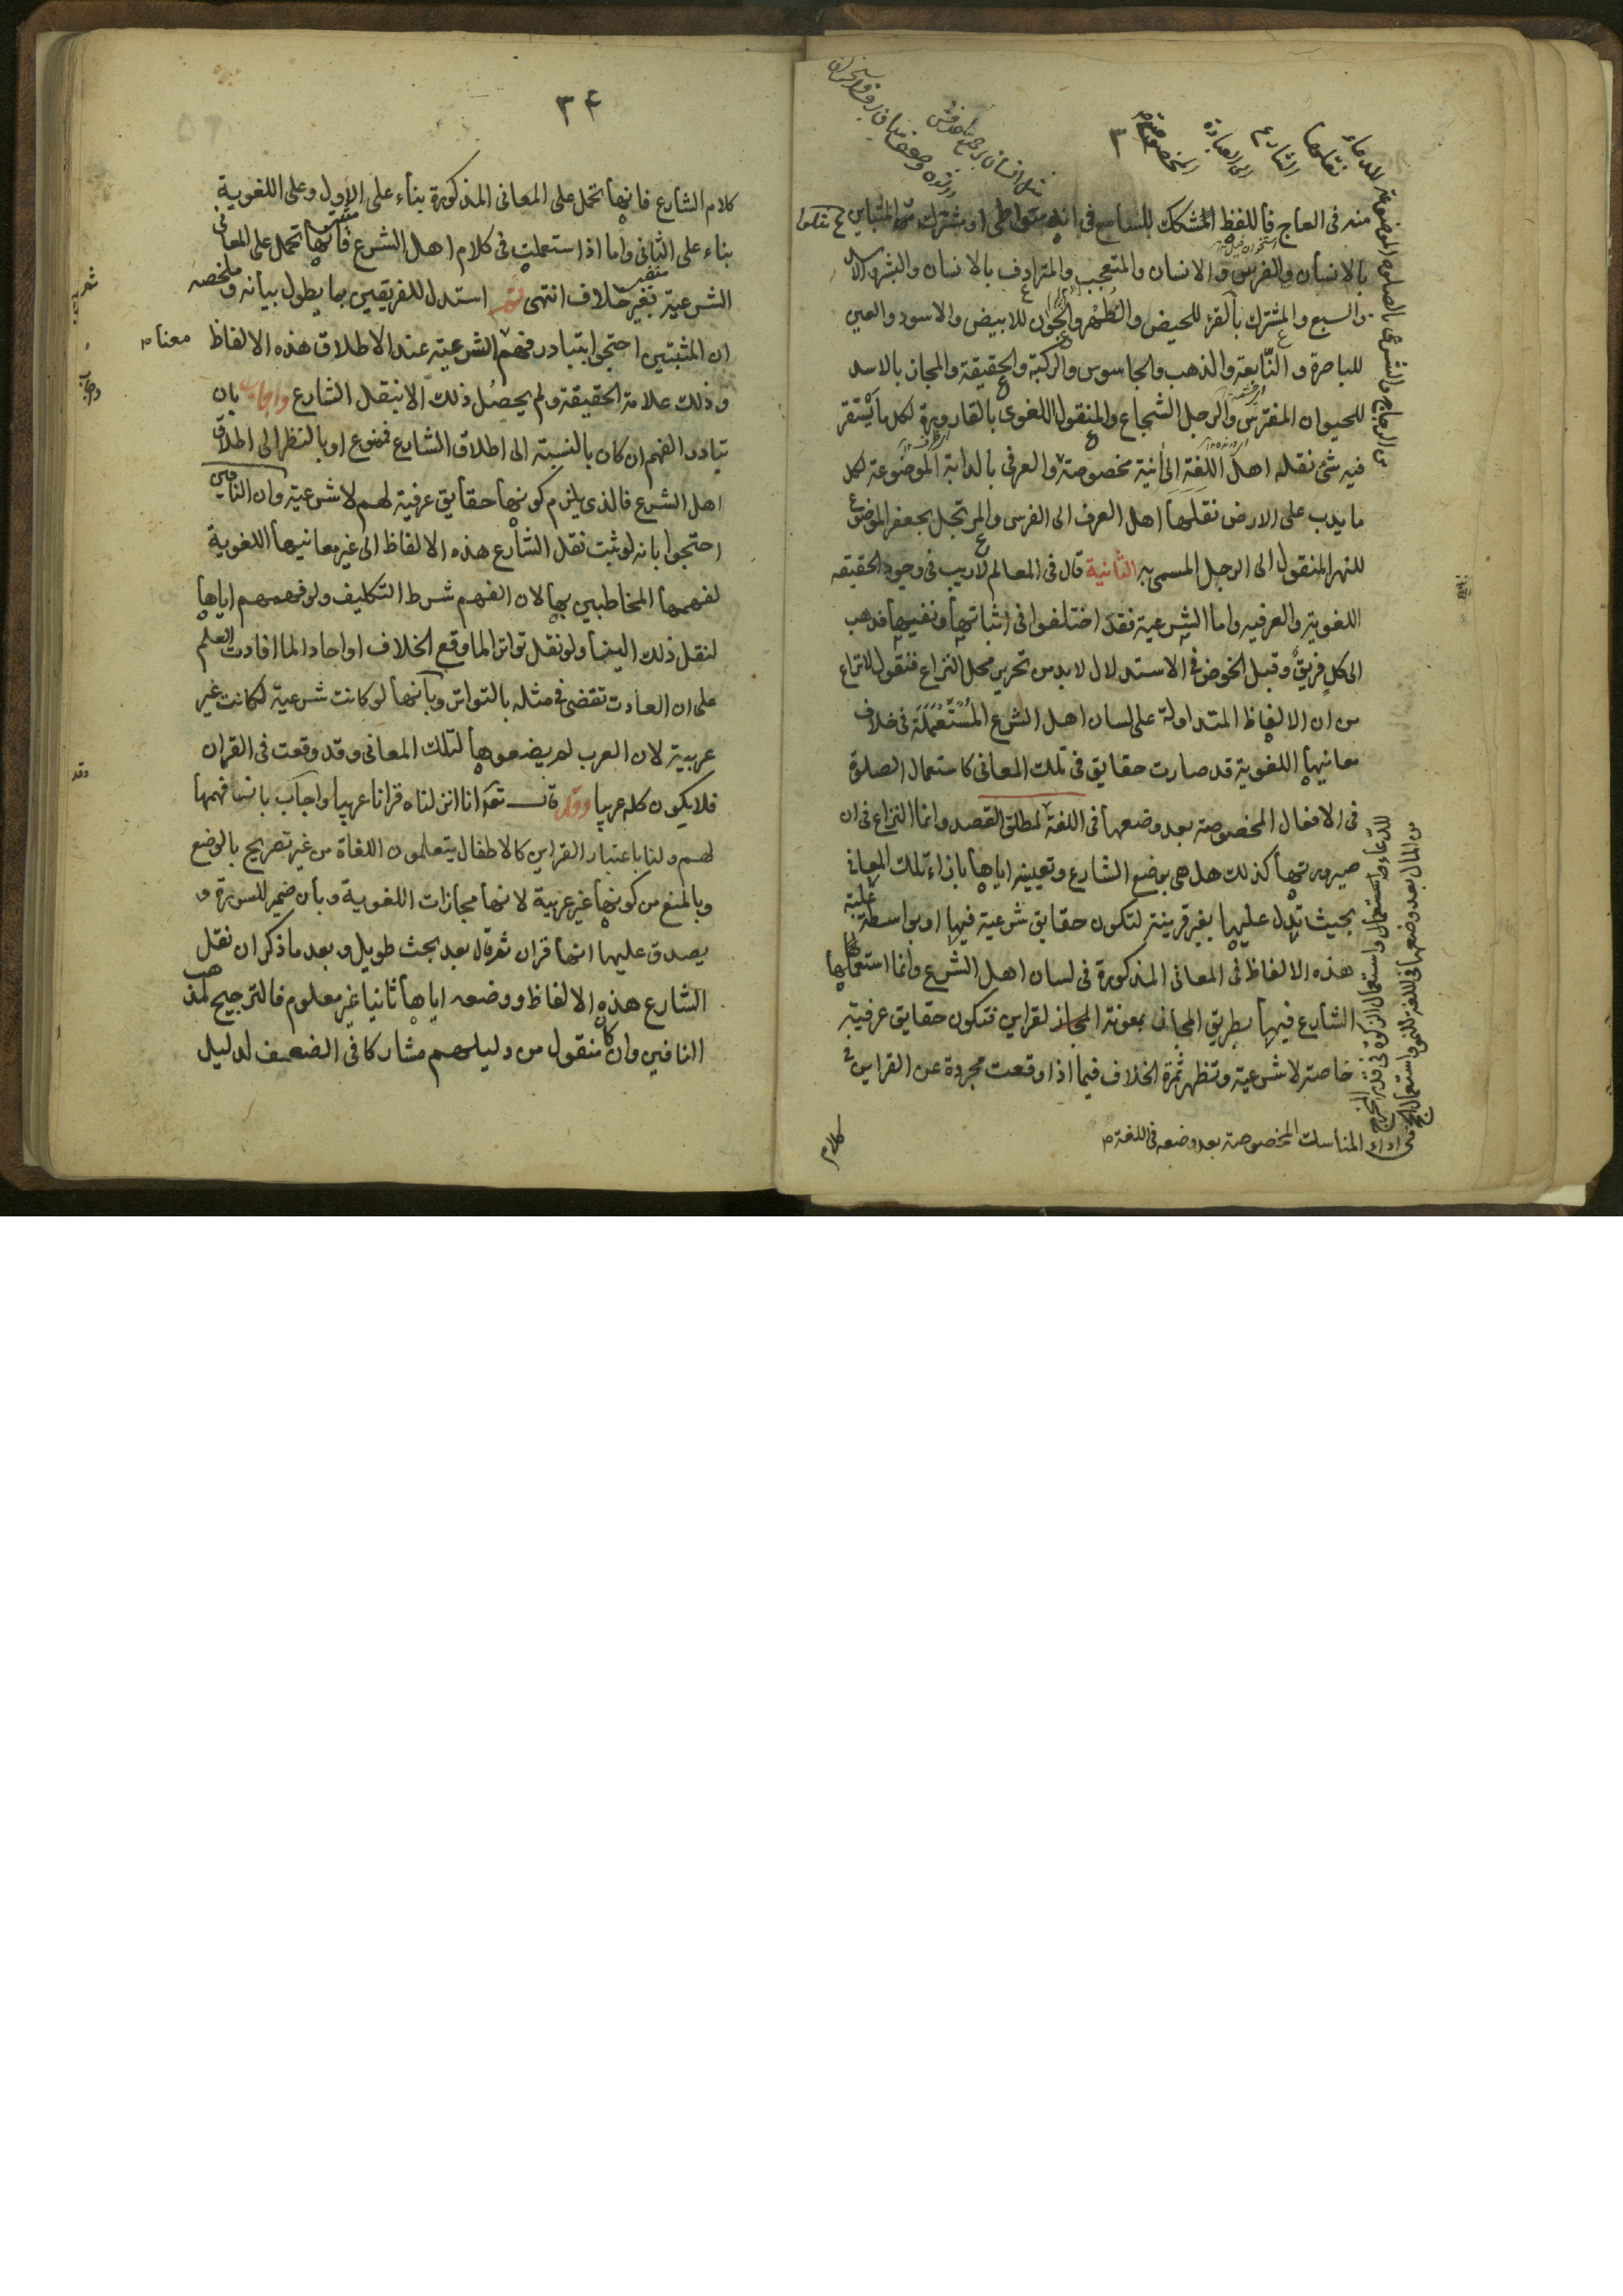 منه فى العاج فاللفظ المشكك للسامع فى انه متواطى او مشترك ثم المتباين
بالانسان والفرس و الانسان والمتعجب والمترادف بالانسان والبشر والاسد
والسبع والمشترك بالقرء للحيض والطهر والجون للابيض والاسود والعين
للباصرة و النابعة والذهب والجاسوس والركبة والحقيقة والمجاز بالاسد
للحيوان المفترس والرجل الشجاع والمنقول اللغوى بالقارورة لكل ما يستقر
فيه شئ نقله اهل اللغة الى انية مخصوصة والعرفى بالدابة الموضوعة لكل
ما يدب على الارض نقلها اهل العرف الى الفرس والمرتجل بجعفر الموضوع
للنهر المنقول الى الرجل المسمى به الثانية قال فى المعالم لا ريب فى وجود الحقيقه
اللغوية والعرفيه واما الشرعية فقد اختلفوا فى اثباتها ونفيها فذهب
الى كل فريق وقبل الخوض فى الاستدلال لا بد من تحرير محل النزاع فنقول لا نزاع
من ان الالفاظ المتداولة على لسان اهل الشرع المستعملة فى خلاف
معانيها اللغوية قد صارت حقايق فى تلك المعانى كاستعمال الصلوة
فى الافعال المخصوصة بعد وضعها فى اللغة لمطلق القصد وانما النزاع فى ان
صيرورتها كذلك هل هى بوضع الشارع وتعيينه اياها بازاء تلك المعانى
بحيث تدل عليها بغير قرينة لتكون حقايق شرعية فيها او بواسطة غلبة
هذه الالفاظ فى المعانى المذكورة فى لسان اهل الشرع وانما استعملها
الشارع فيها بطريق المجاز بمعونة المجاز لقراين فتكون حقايق عرفية
خاصة لا شرعية وتظهر ثمرة الخلاف فيما اذا وقعت مجردة عن القراين فى
للدعاء واستعمال الزكوة فى قدر المخرج
من المال بعد وضعها فى اللغة للنمو واستعمال الحج
فى اداء المناسك المخصوصة بعد وضعه فى اللغة
كلام
٣٤
كلام الشارع فانها تحمل على المعانى المذكورة بناء على الاول وعلى اللغوية
بناء على الثانى واما اذا استعملت فى كلام اهل الشرع فانها تحمل على المعانى
الشرعية بغير خلاف انتهى ثم استدل للفريقين بما يطول بيانه وملخصه
ان المثبتين احتجوا بتبادر فهم الشرعية عند الاطلاق هذه الالفاظ معناه
وذلك علامة الحقيقة ولم يحصل ذلك الا بنقل الشارع واجاب بان
تبادر الفهم ان كان بالنسبة الى اطلاق الشارع فممنوع او بالنظر الى اطلاق
اهل الشرع فالذى يلزم كونها حقايق عرفية لهم لا شرعية وان النافين
احتجوا بانه لو ثبت نقل الشارع هذه الالفاظ الى غير معانيها اللغوية
لفهمها المخاطبين بها لان الفهم شرط التكليف ولو فهمهم اياها
لنقل ذلك الينا ولو نقل تواتر الما وقع الخلاف او احادا لما افادت العلم
على ان العادت تقضى فى مثله بالتواتر وبانها لو كانت شرعية لكانت غير
عربية لان العرب لم يضعوها لتلك المعانى وقد وقعت فى القران
فلا يكون كله عربيا وقد قال تعه انا انزلناه قرانا عربيا واجاب بانها فهمها
لهم ولنا باعتبار القراين كالاطفال يتعلمون اللغاة من غير تصريح بالوضع
وبالمنع من كونها غير عربية لانها مجازات اللغوية وبان ضمير للسورة و
يصدق عليها انها قران ثم قال بعد بحث طويل وبعد ما ذكر ان نقل
الشارع هذه الالفاظ ووضعه اياها ثانيا غير معلوم فالترجيح لمذهب
النافين وان كان منقول من دليلهم مشاركا فى الضعف لدليل